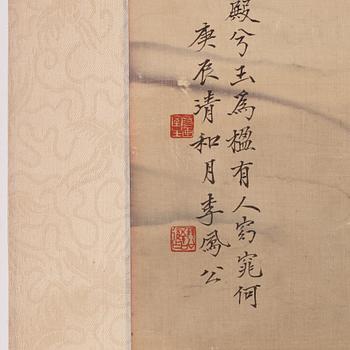 殿兮玉為楹有人窈窕何
庚辰清和月李鳳公